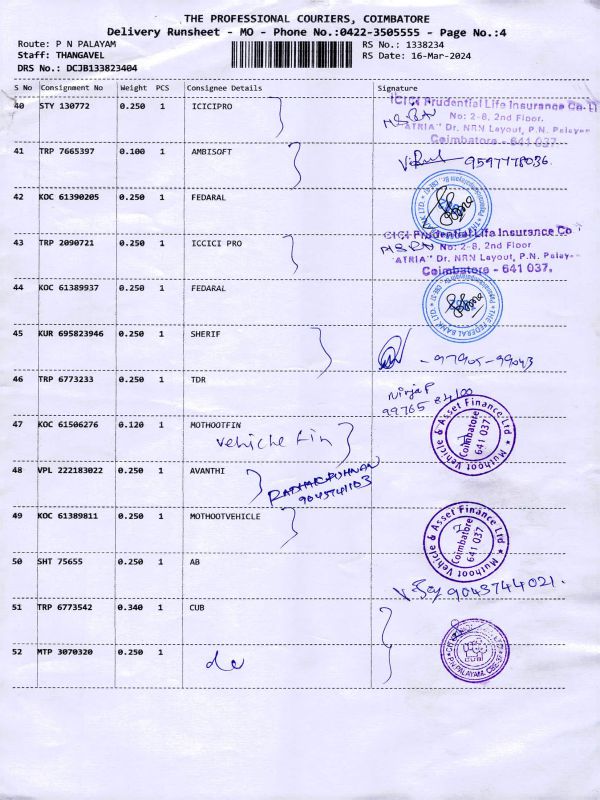 THE PROFESSIONAL COURIERS, COIMBATORE
Delivery Runsheet - MO - Phone No.:0422-3505555 - Page No.:4
Route: P N PALAYAM
RS No.: 1338234
Staff: THANGAVEL
RS Date: 16-Mar-2024
DRS No.: DCJB133823404
S No Consignment No Weight PCS Consignee Details Signature
40 STY 130772 0.250 1 ICICIPRO
ICICI Prudential Life Insurance Co. L
No: 2-8, 2nd Floor.
"ATRIA" Dr. NRN Layout, P.N. Palay
Coimbatore - 641 037.
41 TRP 7665397 0.100 1 AMBISOFT
42 KOC 61390205 0.250 1 FEDARAL
43 TRP 2090721 0.250 1 ICCICI PRO
ICICI Prudential Life Insurance Co
No: 2-8, 2nd Floor
"ATRIA" Dr. NRN Layout, P.N. Palay
Coimbatore - 641 037.
44 KOC 61389937 0.250 1 FEDARAL
THE FEDERAL BANK LTD.
45 KUR 695823946 0.250 1 SHERIF
- 97905-99043
46 TRP 6773233 0.250 1 TDR
Nirja P
99765 84100
47 KOC 61506276 0.120 1 MOTHOOTFIN
vehicle fin
Muthoot Vehicle & Asset Finance Ltd
Coimbatore
641 037
48 VPL 222183022 0.250 1 AVANTHI
9045741103
49 KOC 61389811 0.250 1 MOTHOOTVEHICLE
Muthoot Vehicle & Asset Finance Ltd
Coimbatore
641 037
50 SHT 75655 0.250 1 AB
9043744021.
51 TRP 6773542 0.340 1 CUB
52 MTP 3070320 0.250 1
do